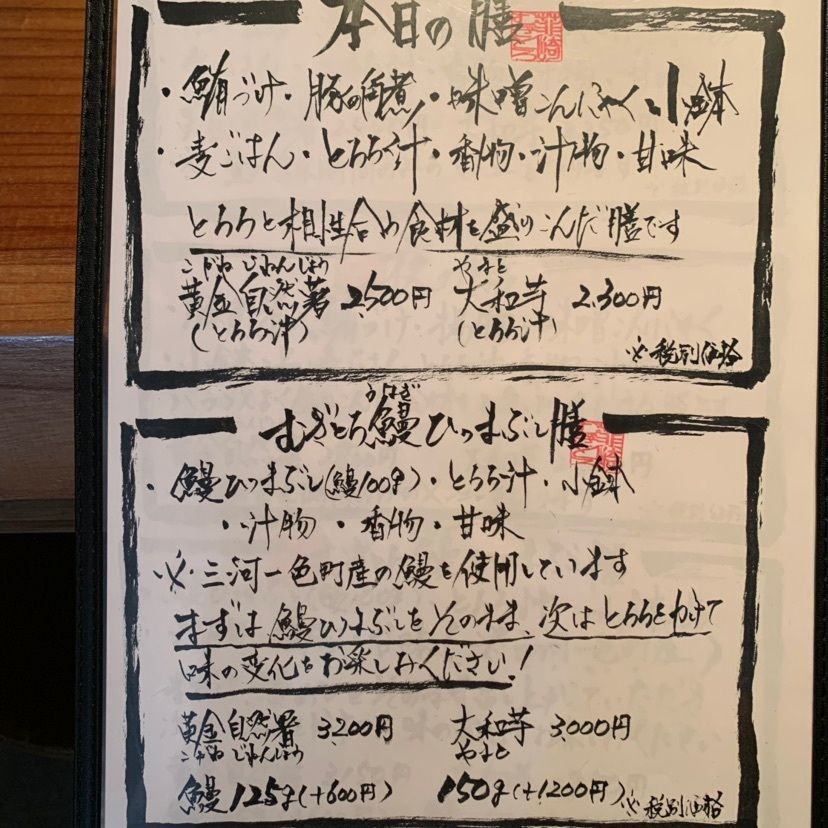 本日の膳
・鮪づけ・豚の角煮・味噌こんにゃく・小鉢
・麦ごはん・とろろ汁・香物・汁物・甘味
とろろと相性合う食材を盛りこんだ膳です
こがねじねんじょう やまと
黄金自然薯 2,500円 大和芋 2,300円
(とろろ汁) (とろろ汁)
※税別価格
うなぎ
むぎとろ鰻ひつまぶし膳
・鰻ひつまぶし(鰻100g)・とろろ汁・小鉢
・汁物・香物・甘味
※三河一色町産の鰻を使用しています
まずは鰻ひつまぶしをそのまま、次はとろろをかけて
味の変化をお楽しみください!
黄金自然署 3,200円 大和芋 3,000円
こがねじねんじょう やまと
鰻125g(+600円) 150g(+1200円)
※税別価格